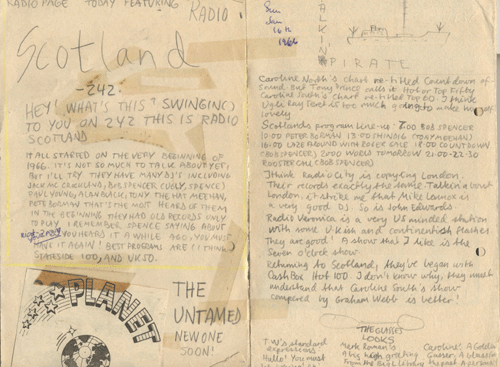 RADIO PAGE TODAY FEATURING RADIO
Scotland
-242-
HEY! WHAT'S THIS? SWINGING
TO YOU ON 242 THIS IS RADIO
SCOTLAND
IT ALL STARTED ON THE VERY BEGINNING OF
PAGE. IT'S NOT SO MUCH TO TALK ABOUT YET,
BUT I'LL TRY. THEY HAVE MANY DJ'S INCLUDING
JACK MC LAUGHLIN, BOB SPENCER,
PAUL YOUNG, ALAN BLACK, TONY
PETE BOWMAN THAT'S THE MOST HEARD OF THEM
IN THE BEGINNING THEY HAD OLD RECORDS ONLY
TO PLAY. I REMEMBER SPENCE SAYING ABOUT
YOU HEARD IT A WHILE AGO, YOU MUST
IT AGAIN! BEST PROGRAMS ARE
CLANSIDE 100, AND UK50.
PLANET
THE
UNTAMED
NEW ONE
SOON!
Sun
Jun
16th
1966
TALKING
PIRATE
Caroline North's chart re-titled Countdown of
Sound. But Tony Prince calls it Hot or Top Fifty
Caroline South's chart re-titled Top 60. I think
Ugli Ray Teret is too much going to make
lovely
Scotlands program line-up: 7.00 BOB SPENCER
10.00 PETER BOWMAN 13.00 THINGIO (TONY MEEHAN)
16.00 LAZE AROUND WITH ROGER GALE 18.00 COUNTDOWN
(BOB SPENCER) 20.00 WORLD TOMORROW 21.00-22.30
ROOSTER CALL (BOB SPENCER)
I think Radio City is copying London.
Their records exactly the same. Talkin'about
London, it strike me that Mike Lennox is
a very good DJ. So is John Edwards.
Radio Veronica is a very US minded station
with some U.K-ish and continentish flashes
They are good! A show that I like is the
Seven o'clock show.
Returning to Scotland, they've began with
CashBox Hot 100. I don't know why, they must
understand that Caroline South's show
compered by Graham Webb is better!
THE GUESTS
LOOKS
T.W's standard
expressions
Hello! You must
Mark Roman's
A big high greeting
Caroline! A Golden